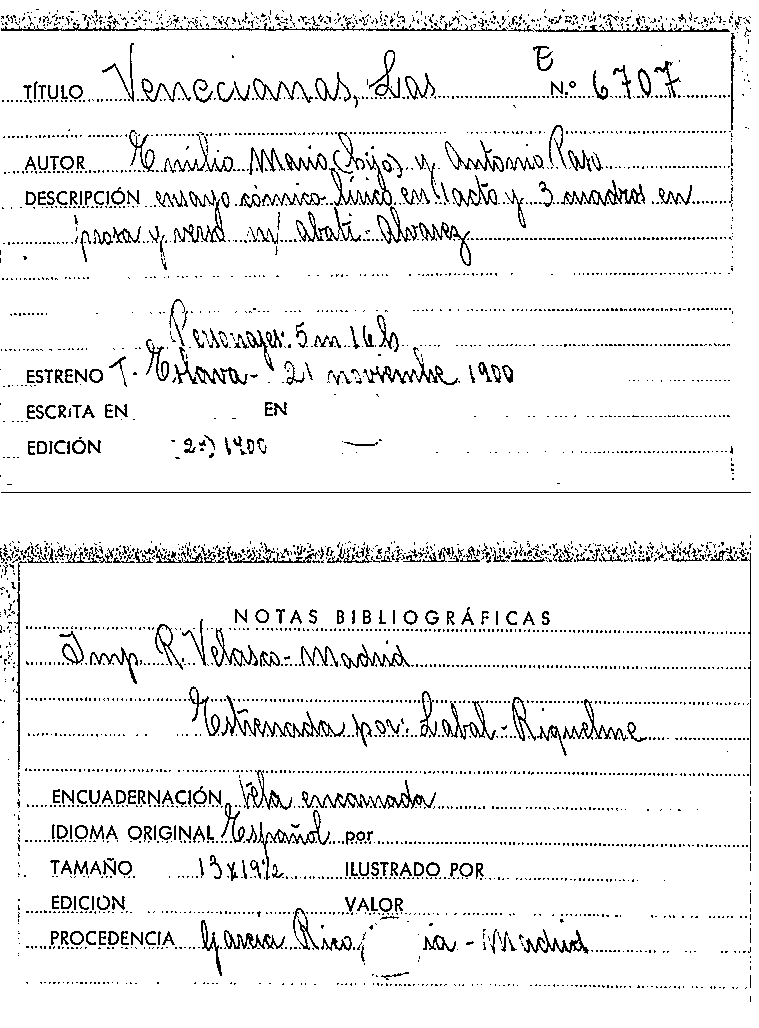 E
TÍTULO Venecianas, Las N.º 6707
AUTOR Emilio Mario (hijo) y Antonio Paso
DESCRIPCIÓN ensayo cómico-lírico en 1 acto y 3 cuadros en
prosa y verso m/ Abati-Alvarez
Personajes: 5 m 16 h
ESTRENO T. Eslava- 21 noviembre 1900
ESCRITA EN EN
EDICIÓN (2ª) 1900 —
NOTAS BIBLIOGRÁFICAS
Imp R. Velasco-Madrid
Estrenada por: Labal-Riquelme
ENCUADERNACIÓN Tela encarnada
IDIOMA ORIGINAL Español por
TAMAÑO 13x19½ ILUSTRADO POR
EDICIÓN VALOR
PROCEDENCIA García Rico ia - Madrid